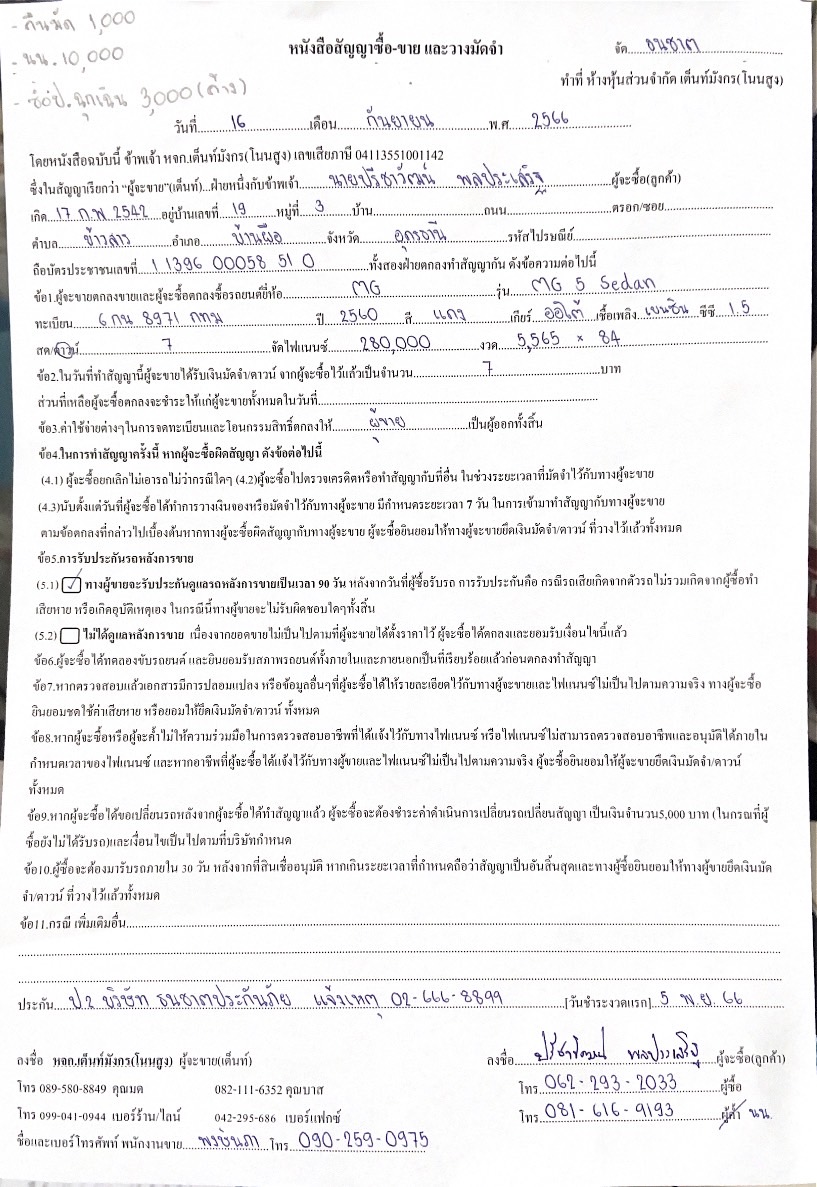 - คืนมัด 1,000
- นน. 10,000
- ซ่อป.ฉุกเฉิน 3,000 (ค้าง)
หนังสือสัญญาซื้อ-ขาย และวางมัดจำ
จัด ธนชาต
ทำที่ ห้างหุ้นส่วนจำกัด เต็นท์มังกร(โนนสูง)
วันที่ 16 เดือน กันยายน พ.ศ 2566
โดยหนังสือฉบับนี้ ข้าพเจ้า หจก.เต็นท์มังกร(โนนสูง) เลขเสียภาษี 04113551001142
ซึ่งในสัญญาเรียกว่า "ผู้จะขาย"(เต็นท์)...ฝ่ายหนึ่งกับข้าพเจ้า นายปรีชาวัฒน์ พลประเสริฐ ผู้จะซื้อ(ลูกค้า)
เกิด 17 ก.พ. 2542 อยู่บ้านเลขที่ 19 หมู่ที่ 3 บ้าน ถนน ตรอก/ซอย
ตำบล ข้าวสาร อำเภอ บ้านผือ จังหวัด อุดรธานี รหัสไปรษณีย์
ถือบัตรประชาชนเลขที่ 1 1396 00058 51 0 ทั้งสองฝ่ายตกลงทำสัญญากัน ดังข้อความต่อไปนี้
ข้อ1.ผู้จะขายตกลงขายและผู้จะซื้อตกลงซื้อรถยนต์ยี่ห้อ MG รุ่น MG 5 Sedan
ทะเบียน 6กน 8971 กทม ปี 2560 สี แดง เกียร์ ออโต้ เชื้อเพลิง เบนซิน ซีซี 1.5
สด/ดาวน์ 7 จัดไฟแนนซ์ 280,000 งวด 5,565 × 84
ข้อ2.ในวันที่ทำสัญญานี้ผู้จะขายได้รับเงินมัดจำ/ดาวน์ จากผู้จะซื้อไว้แล้วเป็นจำนวน 7 บาท
ส่วนที่เหลือผู้จะซื้อตกลงจะชำระให้แก่ผู้จะขายทั้งหมดในวันที่
ข้อ3.ค่าใช้จ่ายต่างๆในการจดทะเบียนและโอนกรรมสิทธิ์ตกลงให้ ผู้ขาย เป็นผู้ออกทั้งสิ้น
ข้อ4.ในการทำสัญญาครั้งนี้ หากผู้จะซื้อผิดสัญญา ดังข้อต่อไปนี้
(4.1) ผู้จะซื้อยกเลิกไม่เอารถไม่ว่ากรณีใดๆ (4.2)ผู้จะซื้อไปตรวจเครดิตหรือทำสัญญากับที่อื่น ในช่วงระยะเวลาที่มัดจำไว้กับทางผู้จะขาย
(4.3)นับตั้งแต่วันที่ผู้จะซื้อได้ทำการวางเงินจองหรือมัดจำไว้กับทางผู้จะขาย มีกำหนดระยะเวลา 7 วัน ในการเข้ามาทำสัญญากับทางผู้จะขาย
ตามข้อตกลงที่กล่าวไปเบื้องต้นหากทางผู้จะซื้อผิดสัญญากับทางผู้จะขาย ผู้จะซื้อยินยอมให้ทางผู้จะขายยึดเงินมัดจำ/ดาวน์ ที่วางไว้แล้วทั้งหมด
ข้อ5.การรับประกันรถหลังการขาย
(5.1) ✓ ทางผู้ขายจะรับประกันดูแลรถหลังการขายเป็นเวลา 90 วัน หลังจากวันที่ผู้ซื้อรับรถ การรับประกันคือ กรณีรถเสียเกิดจากตัวรถไม่รวมเกิดจากผู้ซื้อทำ
เสียหาย หรือเกิดอุบัติเหตุเอง ในกรณีนี้ทางผู้ขายจะไม่รับผิดชอบใดๆทั้งสิ้น
(5.2) ไม่ได้ดูแลหลังการขาย เนื่องจากยอดขายไม่เป็นไปตามที่ผู้จะขายได้ตั้งราคาไว้ ผู้จะซื้อได้ตกลงและยอมรับเงื่อนไขนี้แล้ว
ข้อ6.ผู้จะซื้อได้ทดลองขับรถยนต์ และยินยอมรับสภาพรถยนต์ทั้งภายในและภายนอกเป็นที่เรียบร้อยแล้วก่อนตกลงทำสัญญา
ข้อ7.หากตรวจสอบแล้วเอกสารมีการปลอมแปลง หรือข้อมูลอื่นๆที่ผู้จะซื้อได้ให้รายละเอียดไว้กับทางผู้จะขายและไฟแนนซ์ไม่เป็นไปตามความจริง ทางผู้จะซื้อ
ยินยอมชดใช้ค่าเสียหาย หรือยอมให้ยึดเงินมัดจำ/ดาวน์ ทั้งหมด
ข้อ8.หากผู้จะซื้อหรือผู้จะค้ำไม่ให้ความร่วมมือในการตรวจสอบอาชีพที่ได้แจ้งไว้กับทางไฟแนนซ์ หรือไฟแนนซ์ไม่สามารถตรวจสอบอาชีพและอนุมัติได้ภายใน
กำหนดเวลาของไฟแนนซ์ และหากอาชีพที่ผู้จะซื้อได้แจ้งไว้กับทางผู้ขายและไฟแนนซ์ไม่เป็นไปตามความจริง ผู้จะซื้อยินยอมให้ผู้จะขายยึดเงินมัดจำ/ดาวน์
ทั้งหมด
ข้อ9.หากผู้จะซื้อได้ขอเปลี่ยนรถหลังจากผู้จะซื้อได้ทำสัญญาแล้ว ผู้จะซื้อจะต้องชำระค่าดำเนินการเปลี่ยนรถเปลี่ยนสัญญา เป็นเงินจำนวน5,000 บาท (ในกรณีที่ผู้
ซื้อยังไม่ได้รับรถ)และเงื่อนไขเป็นไปตามที่บริษัทกำหนด
ข้อ10.ผู้ซื้อจะต้องมารับรถภายใน 30 วัน หลังจากที่สินเชื่ออนุมัติ หากเกินระยะเวลาที่กำหนดถือว่าสัญญาเป็นอันสิ้นสุดและทางผู้ซื้อยินยอมให้ทางผู้ขายยึดเงินมัด
จำ/ดาวน์ ที่วางไว้แล้วทั้งหมด
ข้อ11.กรณี เพิ่มเติมอื่น
ประกัน ป.2 บริษัท ธนชาตประกันภัย แจ้งเหตุ 02-666-8899 [วันชำระงวดแรก] 5 พ.ย. 66
ลงชื่อ หจก.เต็นท์มังกร(โนนสูง) ผู้จะขาย(เต็นท์) ลงชื่อ ปรีชาวัฒน์ พลประเสริฐ ผู้จะซื้อ(ลูกค้า)
โทร 089-580-8849 คุณมด 082-111-6352 คุณบาส โทร 062-293-2033 ผู้ซื้อ
โทร 099-041-0944 เบอร์ร้าน/ไลน์ 042-295-686 เบอร์แฟกซ์ โทร 081-616-9193 ผู้ค้ำ นน.
ชื่อและเบอร์โทรศัพท์ พนักงานขาย พรชินภา โทร 090-259-0975